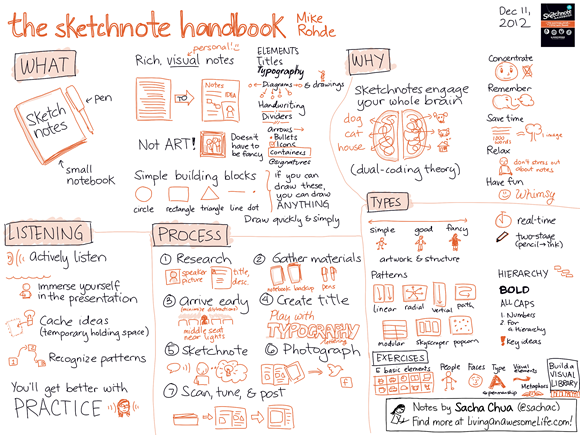 the sketchnote handbook
Mike
Rohde
Dec 11,
2012
WHAT
Sketch
notes
pen
small
notebook
personal!
Rich, visual notes
TO
Notes
IDEA
NOT ART!
Doesn't
have to
be fancy
Simple building blocks
circle rectangle triangle line dot
ELEMENTS
Titles
Typography
Diagrams & drawings
Handwriting
Dividers
Arrows
Bullets
Icons
Containers
Signatures
if you can
draw these,
you can draw
ANYTHING
Draw quickly & simply
WHY
Sketchnotes engage
your whole brain
dog
cat
house
(dual-coding theory)
Concentrate
Remember
Save time
1000
words
1 image
Relax
don't stress out
about notes
Have fun
Whimsy
LISTENING
Actively listen
Immerse yourself
in the presentation
Cache ideas
(temporary holding space)
Recognize patterns
You'll get better with
PRACTICE
PROCESS
① Research
speaker
picture
title,
desc.
② Gather materials
notebook backup pens
③ Arrive early
(minimize distractions)
middle seat
near lights
④ Create title
Play with
TYPOGRAPHY
lettering
⑤ Sketchnote
⑥ Photograph
⑦ Scan, tune, & post
TYPES
simple good fancy
artwork & structure
real-time
two-stage
(pencil→ink)
Patterns
linear radial vertical path
modular skyscraper popcorn
HIERARCHY
BOLD
ALL CAPS
1. Numbers
2. For
a Hierarchy
! Key ideas
EXERCISES
5 basic elements
People
Faces
Type
A
penmanship
Visual
elements
Metaphors
Build a
VISUAL
LIBRARY
Notes by Sacha Chua (@sachac)
Find more at LivingAnAwesomeLife.com!